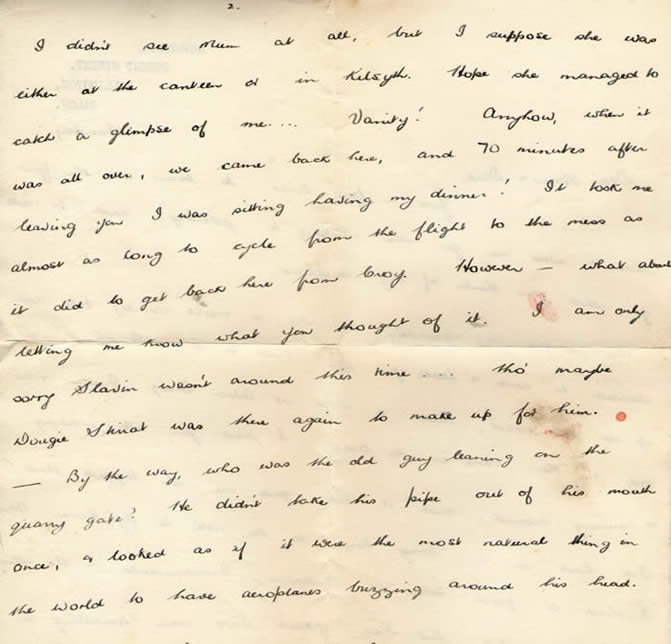 2.
I didn't see Mum at all, but I suppose she was
either at the canteen or in Kilsyth. Hope she managed to
catch a glimpse of me.... Vanity! Anyhow, when it
was all over, we came back here, and 70 minutes after
leaving you I was sitting having my dinner! It took me
almost as long to cycle from the flight to the mess as
it did to get back here from Croy. However — what about
letting me know what you thought of it. I am only
sorry Slavin wasn't around this time .... tho' maybe
Dougie was there again to make up for him.
— By the way, who was the old guy leaning on the
quarry gate? He didn't take his pipe out of his mouth
once, & looked as if it were the most natural thing in
the world to have aeroplanes buzzing around his head.